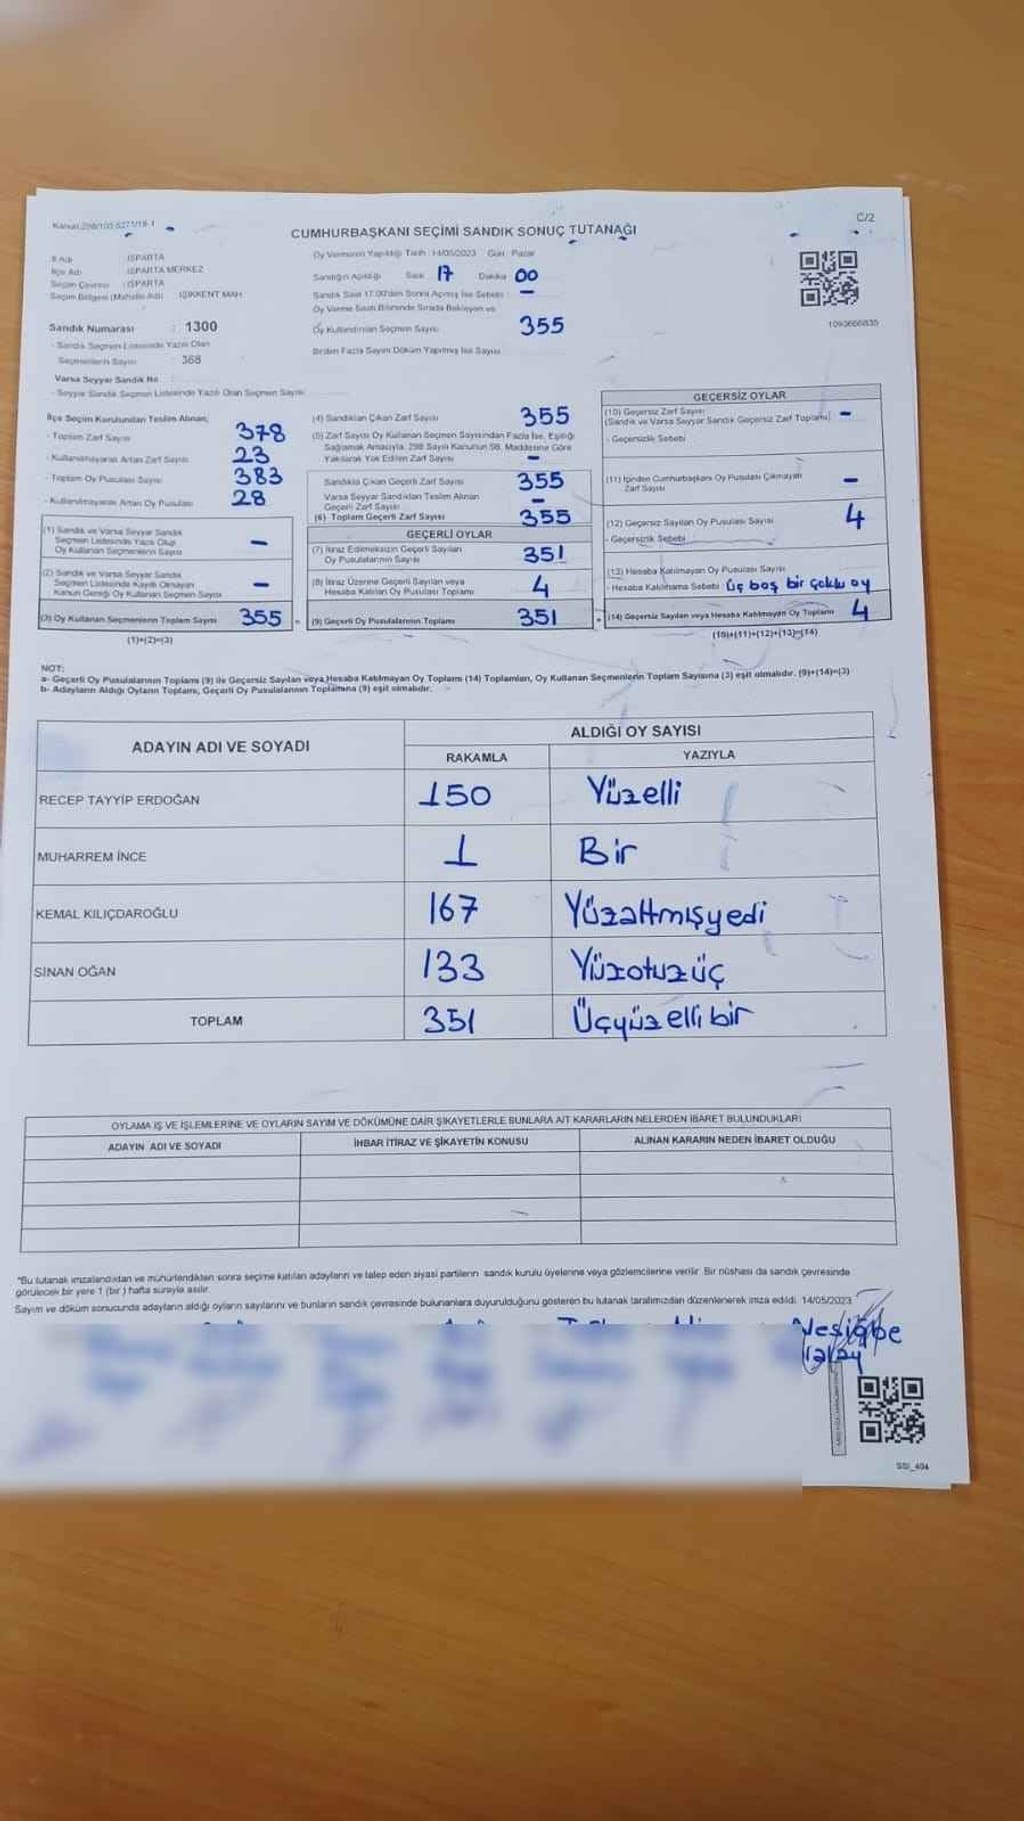 C/2
CUMHURBAŞKANI SEÇİMİ SANDIK SONUÇ TUTANAĞI
İl Adı : ISPARTA
İlçe Adı : ISPARTA MERKEZ
Seçim Çevresi : ISPARTA
Seçim Bölgesi (Mahalle Adı) : IŞIKKENT MAH.
Sandık Numarası : 1300
- Sandık Seçmen Listesinde Yazılı Olan
Seçmenlerin Sayısı : 368
Varsa Seyyar Sandık No :
- Seyyar Sandık Seçmen Listesinde Yazılı Olan Seçmen Sayısı
Oy Vermenin Yapıldığı Tarih : 14/05/2023 Gün : Pazar
Sandığın Açıldığı Saat 17 Dakika 00
Sandık Saat 17:00'den Sonra Açılmış İse Sebebi : -
Oy Verme Saati Bitiminde Sırada Bekleyen ve
Oy Kullandırılan Seçmen Sayısı 355
Birden Fazla Sayım Döküm Yapılmış İse Sayısı
1093666835
İlçe Seçim Kurulundan Teslim Alınan;
- Toplam Zarf Sayısı 378
- Kullanılmayarak Artan Zarf Sayısı 23
- Toplam Oy Pusulası Sayısı 383
- Kullanılmayarak Artan Oy Pusulası 28
(1) Sandık ve Varsa Seyyar Sandık
Seçmen Listesinde Yazılı Olup
Oy Kullanan Seçmenlerin Sayısı -
(2) Sandık ve Varsa Seyyar Sandık
Seçmen Listesinde Kayıtlı Olmayan
Kanun Gereği Oy Kullanan Seçmen Sayısı -
(3) Oy Kullanan Seçmenlerin Toplam Sayısı 355
(1)+(2)=(3)
(4) Sandıktan Çıkan Zarf Sayısı 355
(5) Zarf Sayısı Oy Kullanan Seçmen Sayısından Fazla İse, Eşitliği
Sağlamak Amacıyla, 298 Sayılı Kanunun 98. Maddesine Göre
Yakılarak Yok Edilen Zarf Sayısı -
Sandıkta Çıkan Geçerli Zarf Sayısı 355
Varsa Seyyar Sandıktan Teslim Alınan
Geçerli Zarf Sayısı -
(6) Toplam Geçerli Zarf Sayısı 355
GEÇERLİ OYLAR
(7) İtiraz Edilmeksizin Geçerli Sayılan
Oy Pusulalarının Sayısı 351
(8) İtiraz Üzerine Geçerli Sayılan veya
Hesaba Katılan Oy Pusulası Toplamı 4
= (9) Geçerli Oy Pusulalarının Toplamı 351
GEÇERSİZ OYLAR
(10) Geçersiz Zarf Sayısı
(Sandık ve Varsa Seyyar Sandık Geçersiz Zarf Toplamı) -
- Geçersizlik Sebebi
(11) İçinden Cumhurbaşkanı Oy Pusulası Çıkmayan
Zarf Sayısı -
(12) Geçersiz Sayılan Oy Pusulası Sayısı 4
- Geçersizlik Sebebi
(13) Hesaba Katılmayan Oy Pusulası Sayısı
- Hesaba Katılmama Sebebi : üç boş bir çoklu oy
+ (14) Geçersiz Sayılan veya Hesaba Katılmayan Oy Toplamı 4
(10)+(11)+(12)+(13)=(14)
NOT:
a- Geçerli Oy Pusulalarının Toplamı (9) ile Geçersiz Sayılan veya Hesaba Katılmayan Oy Toplamı (14) Toplamları, Oy Kullanan Seçmenlerin Toplam Sayısına (3) eşit olmalıdır. (9)+(14)=(3)
b- Adayların Aldığı Oyların Toplamı, Geçerli Oy Pusulalarının Toplamına (9) eşit olmalıdır.
ADAYIN ADI VE SOYADI ALDIĞI OY SAYISI
RAKAMLA YAZIYLA
RECEP TAYYİP ERDOĞAN 150 Yüzelli
MUHARREM İNCE 1 Bir
KEMAL KILIÇDAROĞLU 167 Yüzaltmışyedi
SİNAN OĞAN 133 Yüzotuzüç
TOPLAM 351 Üçyüzellibir
OYLAMA İŞ VE İŞLEMLERİNE VE OYLARIN SAYIM VE DÖKÜMÜNE DAİR ŞİKAYETLERLE BUNLARA AİT KARARLARIN NELERDEN İBARET BULUNDUKLARI
ADAYIN ADI VE SOYADI İHBAR İTİRAZ VE ŞİKAYETİN KONUSU ALINAN KARARIN NEDEN İBARET OLDUĞU
*Bu tutanak imzalandıktan ve mühürlendikten sonra seçime katılan adayların ve talep eden siyasi partilerin sandık kurulu üyelerine veya gözlemcilerine verilir. Bir nüshası da sandık çevresinde
görülecek bir yere 1 (bir) hafta süreyle asılır.
Sayım ve döküm sonucunda adayların aldığı oyların sayılarını ve bunların sandık çevresinde bulunanlara duyurulduğunu gösteren bu tutanak tarafımızdan düzenlenerek imza edildi. 14/05/2023